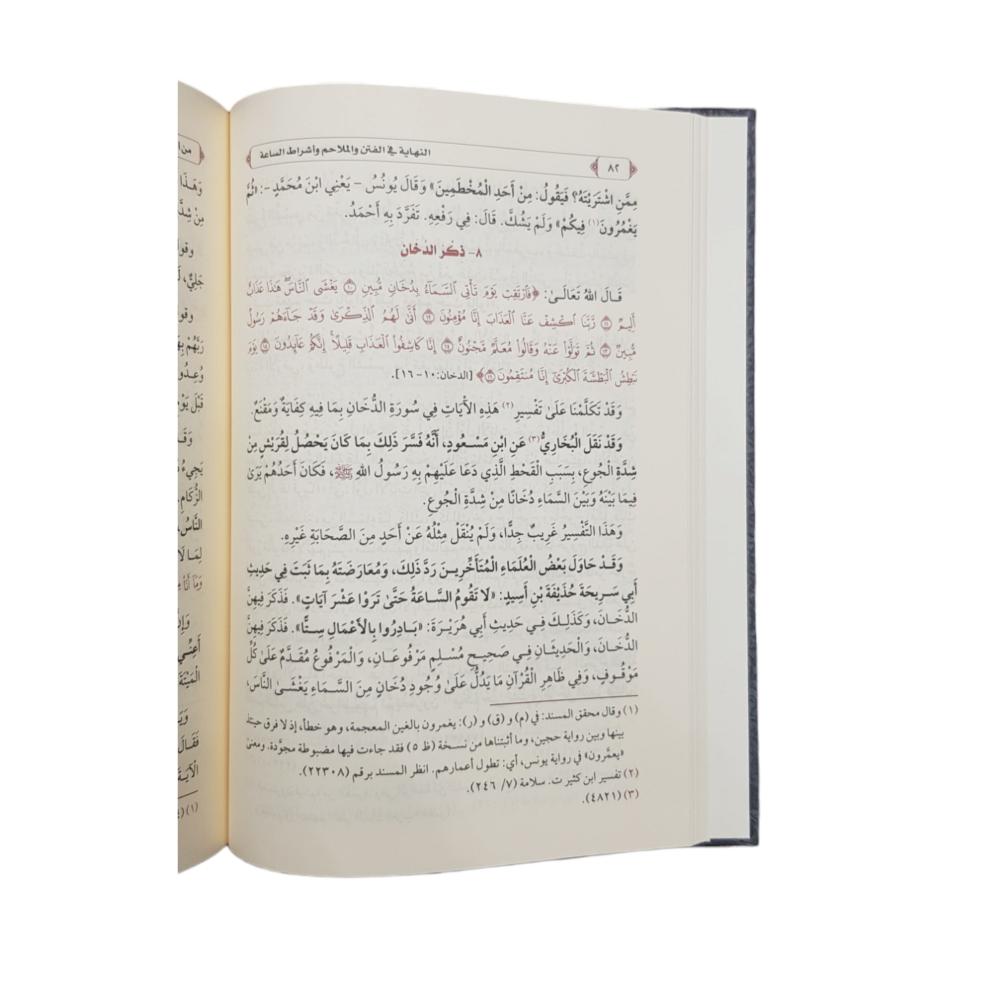 ٨٢
النهاية في الفتن والملاحم وأشراط الساعة
مِمَّنِ اشْتَرَيْتَهُ؟ فَيَقُولُ: مِنْ أَحَدِ الْمُخَطَّمِينَ» وَقَالَ يُونُسُ - يَعْنِي ابْنَ مُحَمَّدٍ -: «ثُمَّ
يَغْمُرُونَ(١) فِيكُمْ» وَلَمْ يَشُكَّ. قَالَ: فِي رَفْعِهِ. تَفَرَّدَ بِهِ أَحْمَدُ.
٨- ذكر الدخان
قَالَ اللهُ تَعَالَى: ﴿فَٱرۡتَقِبۡ يَوۡمَ تَأۡتِي ٱلسَّمَآءُ بِدُخَانٖ مُّبِينٖ ۝١٠ يَغۡشَى ٱلنَّاسَۖ هَٰذَا عَذَابٌ
أَلِيمٞ ۝١١ رَّبَّنَا ٱكۡشِفۡ عَنَّا ٱلۡعَذَابَ إِنَّا مُؤۡمِنُونَ ۝١٢ أَنَّىٰ لَهُمُ ٱلذِّكۡرَىٰ وَقَدۡ جَآءَهُمۡ رَسُولٞ
مُّبِينٞ ۝١٣ ثُمَّ تَوَلَّوۡاْ عَنۡهُ وَقَالُواْ مُعَلَّمٞ مَّجۡنُونٌ ۝١٤ إِنَّا كَاشِفُواْ ٱلۡعَذَابِ قَلِيلًاۚ إِنَّكُمۡ عَآئِدُونَ ۝١٥ يَوۡمَ
نَبۡطِشُ ٱلۡبَطۡشَةَ ٱلۡكُبۡرَىٰٓ إِنَّا مُنتَقِمُونَ ۝١٦﴾ [الدخان: ١٠-١٦].
وَقَدْ تَكَلَّمْنَا عَلَى تَفْسِيرِ(٢) هَذِهِ الْآيَاتِ فِي سُورَةِ الدُّخَانِ بِمَا فِيهِ كِفَايَةٌ وَمَقْنَعٌ.
وَقَدْ نَقَلَ الْبُخَارِيُّ(٣) عَنِ ابْنِ مَسْعُودٍ، أَنَّهُ فَسَّرَ ذَلِكَ بِمَا كَانَ يَحْصُلُ لِقُرَيْشٍ مِنْ
شِدَّةِ الْجُوعِ، بِسَبَبِ الْقَحْطِ الَّذِي دَعَا عَلَيْهِمْ بِهِ رَسُولُ اللهِ ﷺ، فَكَانَ أَحَدُهُمْ يَرَى
فِيمَا بَيْنَهُ وَبَيْنَ السَّمَاءِ دُخَانًا مِنْ شِدَّةِ الْجُوعِ.
وَهَذَا التَّفْسِيرُ غَرِيبٌ جِدًّا، وَلَمْ يُنْقَلْ مِثْلُهُ عَنْ أَحَدٍ مِنَ الصَّحَابَةِ غَيْرِهِ.
وَقَدْ حَاوَلَ بَعْضُ الْعُلَمَاءِ الْمُتَأَخِّرِينَ رَدَّ ذَلِكَ، وَمُعَارَضَتَهُ بِمَا ثَبَتَ فِي حَدِيثِ
أَبِي سَرِيحَةَ حُذَيْفَةَ بْنِ أَسِيدٍ: «لَا تَقُومُ السَّاعَةُ حَتَّى تَرَوْا عَشْرَ آيَاتٍ». فَذَكَرَ فِيهِنَّ
الدُّخَانَ، وَكَذَلِكَ فِي حَدِيثِ أَبِي هُرَيْرَةَ: «بَادِرُوا بِالْأَعْمَالِ سِتًّا». فَذَكَرَ فِيهِنَّ
الدُّخَانَ، وَالْحَدِيثَانِ فِي صَحِيحِ مُسْلِمٍ مَرْفُوعَانِ، وَالْمَرْفُوعُ مُقَدَّمٌ عَلَى كُلِّ
مَوْقُوفٍ، وَفِي ظَاهِرِ الْقُرْآنِ مَا يَدُلُّ عَلَى وُجُودِ دُخَانٍ مِنَ السَّمَاءِ يَغْشَى النَّاسَ،
(١) وقال محقق المسند: في (م) و (ق) و (ر): يغمرون بالغين المعجمة، وهو خطأ، إذ لا فرق حينئذ
بينها وبين رواية حجين، وما أثبتناها من نسخة (ظ ٥) فقد جاءت فيها مضبوطة مجوَّدة. ومعنى
«يعمَّرون» في رواية يونس، أي: تطول أعمارهم. انظر المسند برقم (٢٢٣٠٨).
(٢) تفسير ابن كثير ت. سلامة (٧/ ٢٤٦).
(٣) (٤٨٢١).